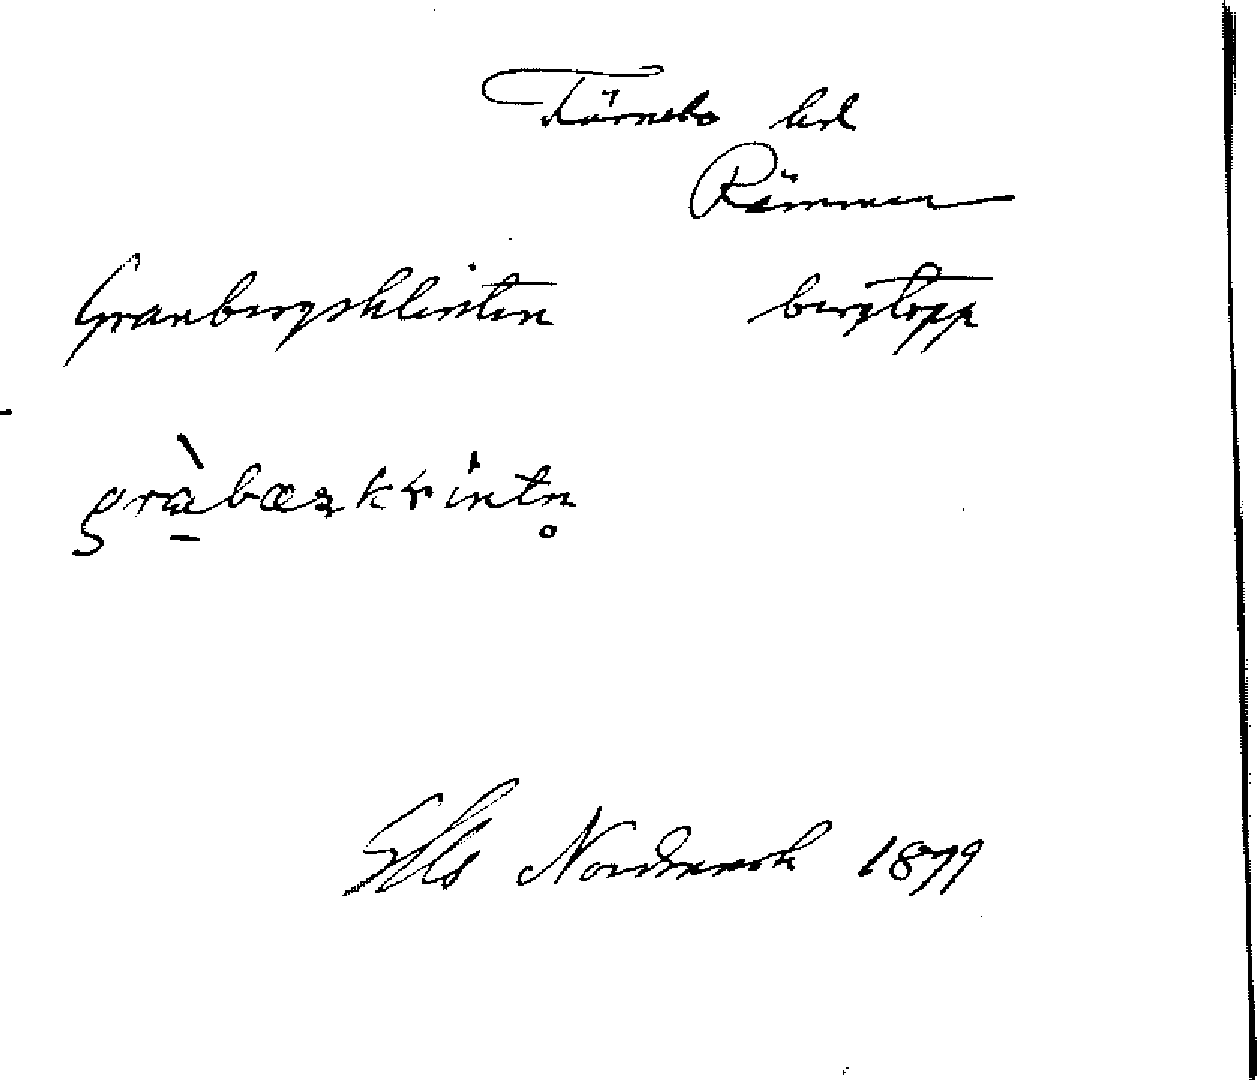 Färnebo hd
Rämmen
Granbergsklinten bergtopp
gràbæskrintn̥
Nordmark 1879